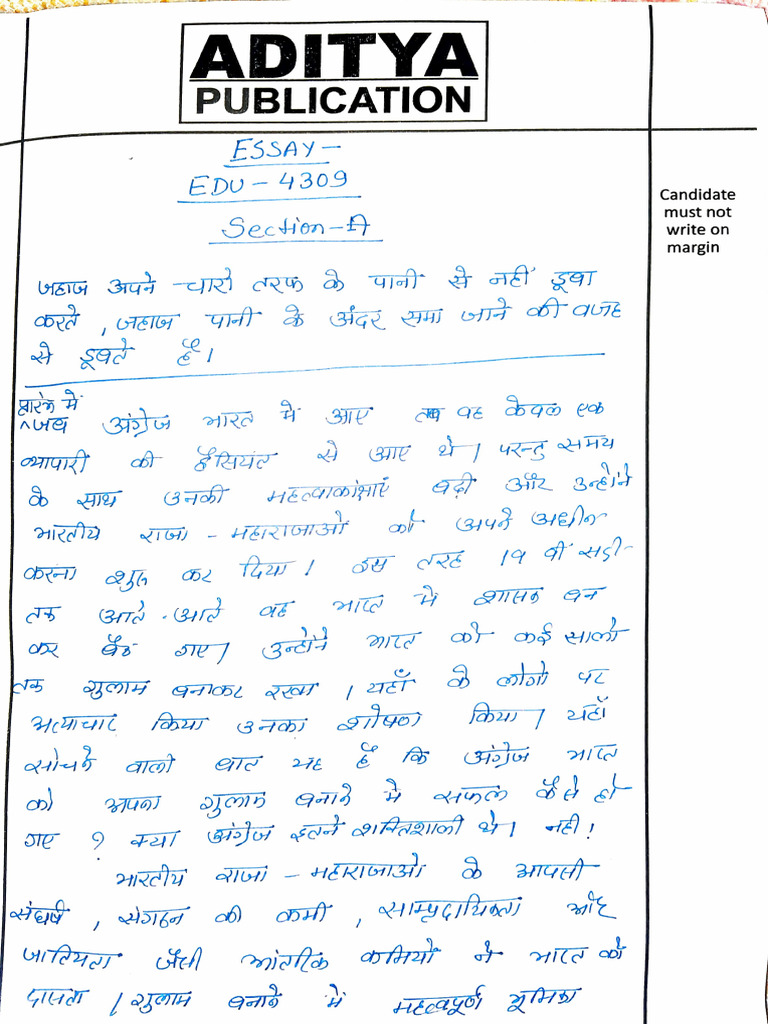 ADITYA
PUBLICATION
ESSAY-
EDU-4309
Section-A
Candidate
must not
write on
margin
जहाज अपने चारो तरफ के पानी से नहीं डूबा
करते, जहाज पानी के अंदर समा जाने की वजह
से डूबते हैं।
प्रारंभ में
^जब अंग्रेज भारत में आए तब वह केवल एक
व्यापारी की हैसियत से आए थे। परन्तु समय
के साथ उनकी महत्वाकांक्षाएं बढ़ी और उन्होंने
भारतीय राजा-महाराजाओ को अपने अधीन
करना शुरू कर दिया। इस तरह 19 वीं सदी
तक आते-आते वह भारत में शासक बन
कर बैठ गए। उन्होंने भारत को कई सालो
तक गुलाम बनाकर रखा। यहाँ के लोगो पर
अत्याचार किया उनका शोषण किया। यहाँ
सोचने वाली बात यह है कि अंग्रेज भारत
को अपना गुलाम बनाने में सफल कैसे हो
गए ? क्या अंग्रेज इतने शक्तिशाली थे। नही!
भारतीय राजा-महाराजाओ के आपसी
संघर्ष, संगठन की कमी, साम्प्रदायिकता और
जातियता जैसी आंतरिक कमियों ने भारत को
दासता / गुलाम बनाने में महत्वपूर्ण भूमिका